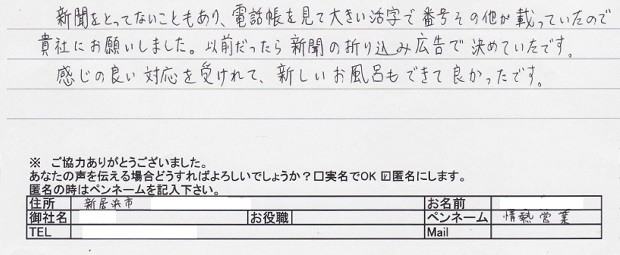 新聞をとってないこともあり、電話帳を見て大きい活字で番号その他が載っていたので
貴社にお願いしました。以前だったら新聞の折り込み広告で決めていたです。
感じの良い対応を受けれて、新しいお風呂もできて良かったです。
※ ご協力ありがとうございました。
あなたの声を伝える場合どうすればよろしいでしょうか?□実名でOK ☑匿名にします。
匿名の時はペンネームを記入下さい。
住所 新居浜市 お名前
御社名 お役職 ペンネーム 情熱営業
TEL Mail